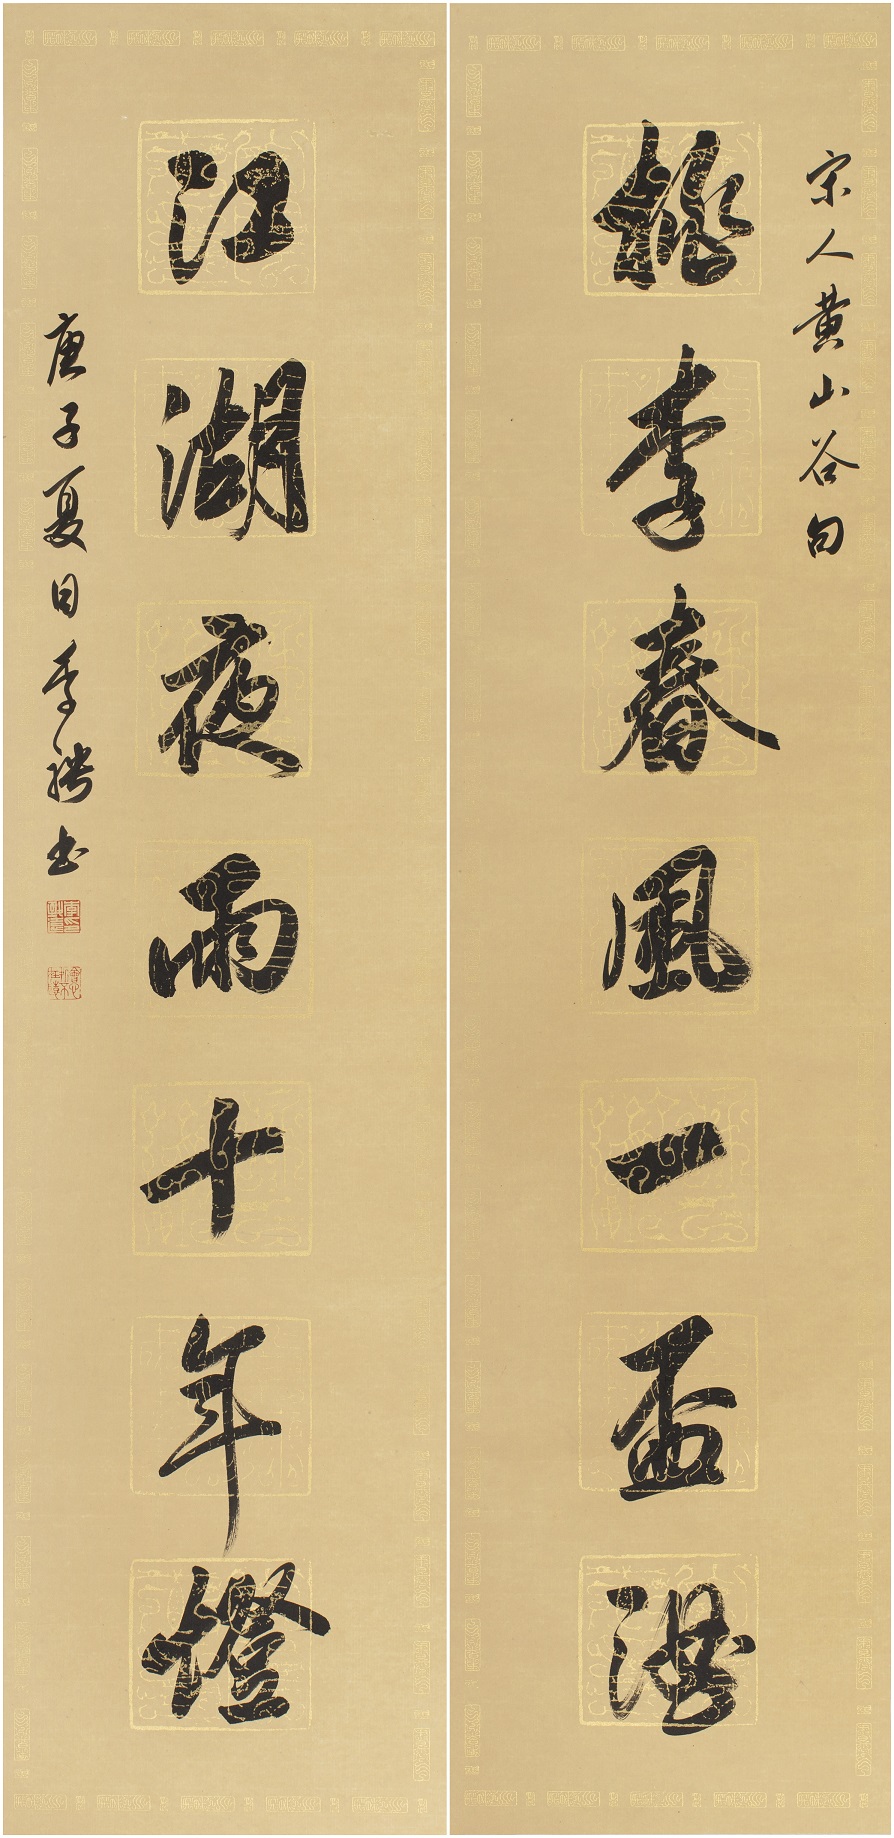 宋人黄山谷句
桃李春風一盃酒
江湖夜雨十年燈
庚子夏日季書